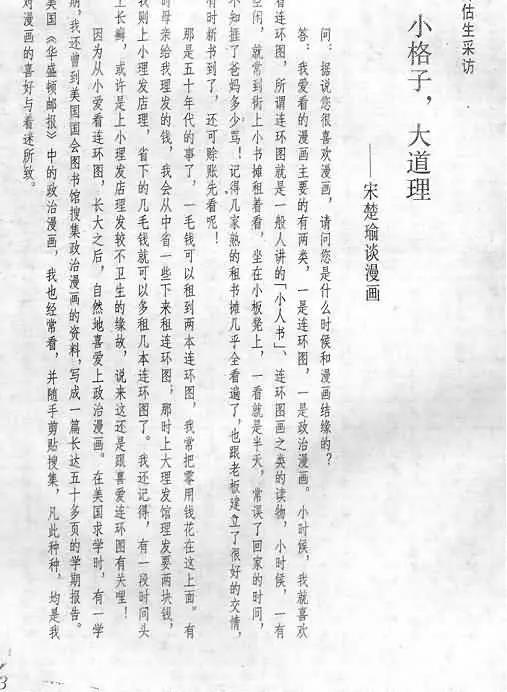 估生采访
小格子，大道理
——宋楚瑜谈漫画
问：据说您很喜欢漫画，请问您是什么时候和漫画结缘的？
答：我爱看的漫画主要的有两类，一是连环图，一是政治漫画。小时候，我就喜欢
看连环图，所谓连环图就是一般人讲的「小人书」、连环图画之类的读物，小时候，一有
空闲，就常到街上小书摊租着看，坐在小板凳上，一看就是半天，常误了回家的时间，
不知捱了爸妈多少骂！记得几家熟的租书摊几乎全看遍了，也跟老板建立了很好的交情，
有时新书到了，还可赊账先看呢！
那是五十年代的事了，一毛钱可以租到两本连环图，我常把零用钱花在这上面。有
时母亲给我理发的钱，我会从中省一些下来租连环图，那时上大理发馆理发要两块钱，
我则上小理发店理，省下的几毛钱就可以多租几本连环图了。我还记得，有一段时间头
上长癣，或许是上小理发店理发较不卫生的缘故，说来这还是跟喜爱连环图有关哩！
因为从小爱看连环图，长大之后，自然地喜爱上政治漫画。在美国求学时，有一学
期，我还曾到美国国会图书馆搜集政治漫画的资料，写成一篇长达五十多页的学期报告。
美国《华盛顿邮报》中的政治漫画，我也经常看，并随手剪贴搜集，凡此种种，均是我
对漫画的喜好与着迷所致。
3